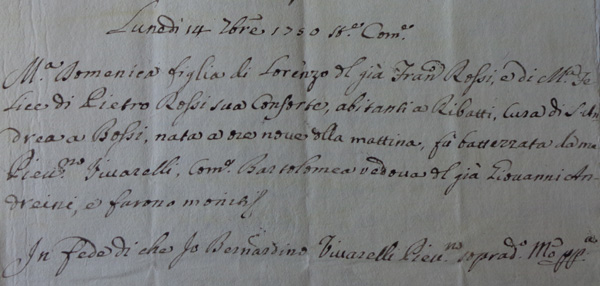 Lunedì 14 7bre 1750 st.e Com.e
M.a Domenica figlia di Lorenzo del già Fran.o Rossi, e di M.a Fe-
lice di Pietro Rossi sua Consorte, abitanti a Ribatti, Cura di S. An-
drea a Bossi, nata a ore nove della mattina, fù battezzata da me
Piev.no Vivarelli, Com.e Bartolomea vedova del già Giovanni An-
dreini, e furono moniti
In fede di che Io Bernardino Vivarelli Piev.no soprad.o M.o pp.a